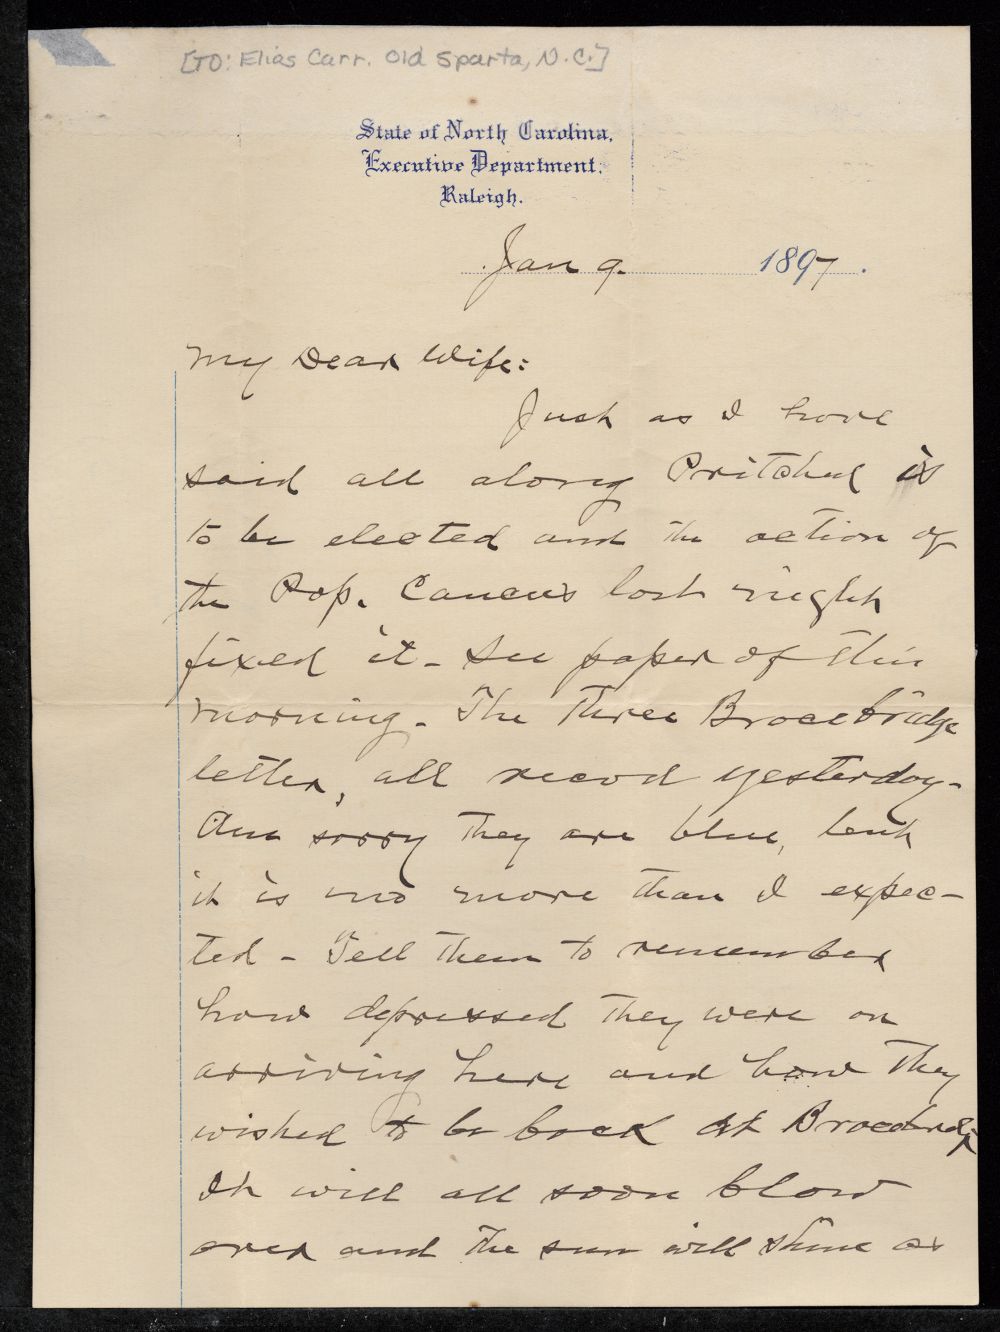 [TO: Elias Carr. Old Sparta, N.C.]
State of North Carolina,
Executive Department,
Raleigh.
Jan 9. 1897.
My Dear Wife:
Just as I have
said all along Pritchard is
to be elected and the action of
the Pop. Caucus last night
fixed it - See paper of this
morning. The Three Bracebridge
letters, all recvd yesterday-
Am sorry they are blue, but
it is no more than I expec-
ted - Tell them to remember
how depressed they were on
arriving here and how they
wished to be back at
It will all soon blow
over and the sun will shine as